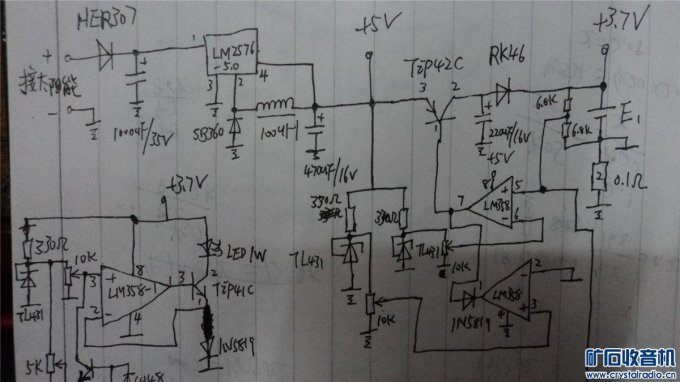 HER307
+5V
+3.7V
LM2576
-5.0
1
2
3
4
+
接太阳能
-
1000uF/35V
SB360
100uH
470uF/16V
TIP42C
3
2
RK46
220uF/16V
+5V
6.8K
6.8K
E1
0.1Ω
LM358
8
7
5
6
+
-
330Ω
330Ω
TL431
TL431
10K
10K
1N5819
LM358
2
3
4
1
-
+
+3.7V
330Ω
TL431
10K
5K
LM358-1
+
-
3
2
8
4
LED/1W
TIP41C
3
2
1
1N5819
矿石收音机
www.crystalradio.cn